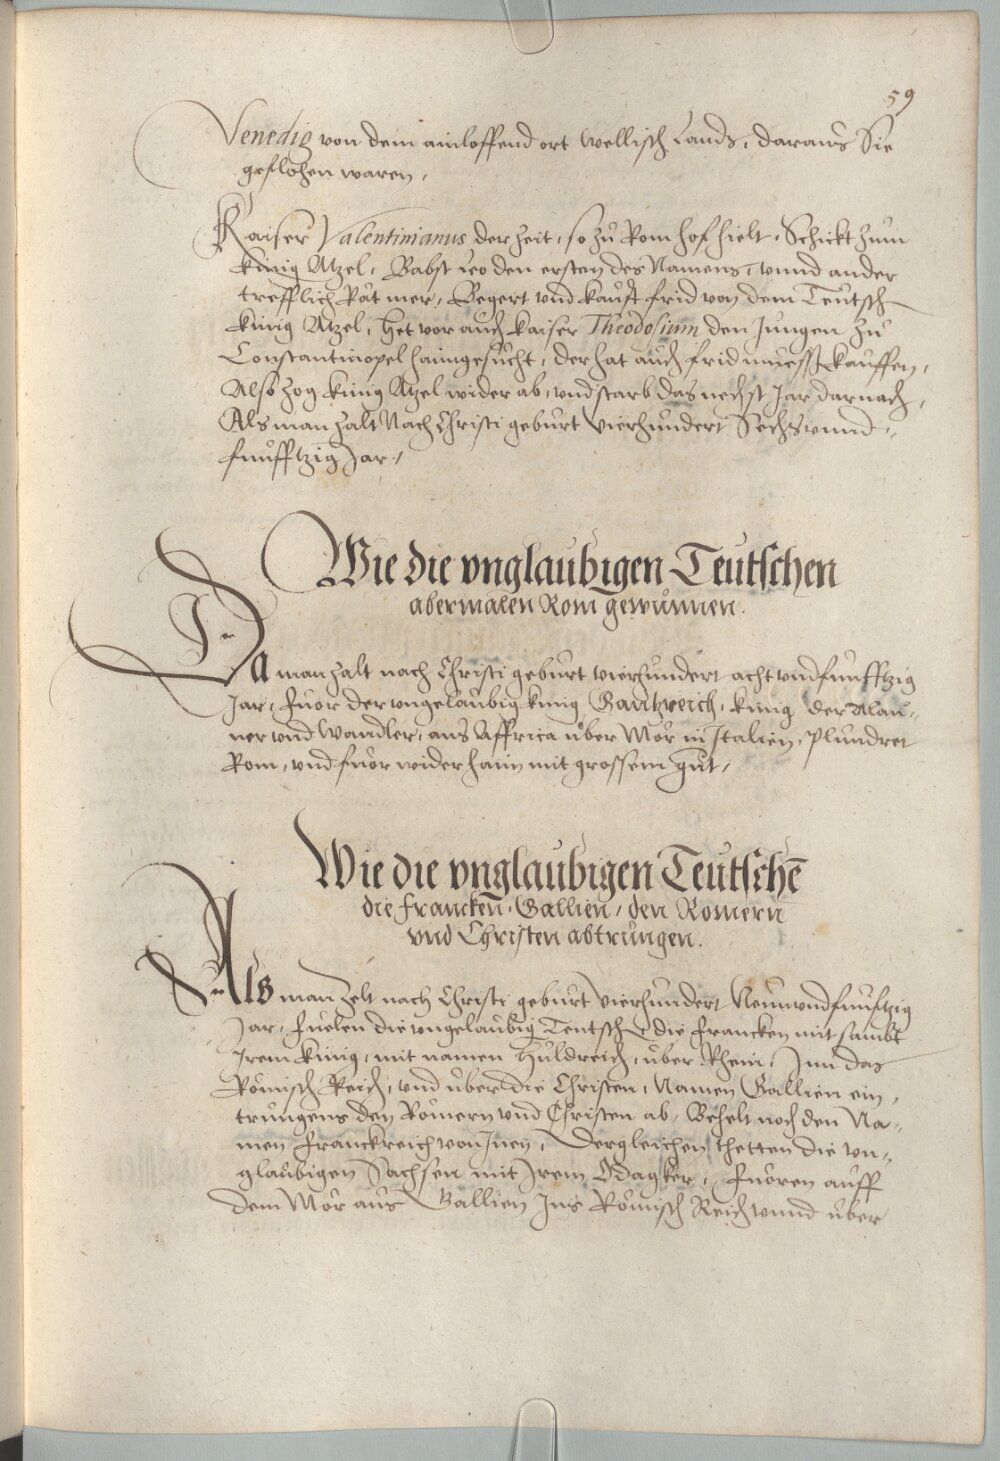 59
Venedig von dem ainloffend ort Wellisch Lands, daraus Sie
geflohen waren,
Kaiser Valentinianus der Zeit, so zů Rom hof hielt, Schickt zum
künig Atzel, Babst Leo den ersten des Namens, vnnd ander
trefflich Rät mer, Begert vnd kaufft frid von dem Teütsch
künig Atzel, Het vor auch kaiser Theodosium den Jungen zů
Constantinopel haimgesůcht, der hat auch frid müessen kauffen,
Also zog künig Atzel wider ab, vnd starb das nechst Jar darnach,
Als man zalt Nach Christi gebůrt vierhundert Sechsvnnd,,
fůnfftzig Jar,
Wie die vnglaubigen Teutschen
abermalen Rom gewůnnen.
Da man zalt nach Christi gebůrt vierhundert acht vnd fůnfftzig
Jar, Fuor der vngelaubig künig Gantzreich, kůnig der Alau,,
ner vnd Wandler, aus Affrica über Mör in Italien, Plundret
Rom, vnd fuor wider haim mit grossem gůt,
Wie die vnglaubigen Teutschē
die Francken, Gallien, den Romern
vnd Christen abtrůngen.
Als man Zelt nach Christi gebůrt vierhundert Neunvndfůnftzig
Jar, Fuelen die vngelaubig Teutsch die Francken mit sambt
Irem künig, mit namen Huldreich, über Rhein, Inn das
Römisch Reich, vnd über die Christen, Namen Gallien ein,
trungens den Römern vnd Christen ab, Behelt noch den Na,,
men Franckreich von Inen, Dergleichen thetten die vn,,
glaubigen Sachsen mit Irem Odagker, Fuoren auff
dem Mör aus Gallien Ins Römisch Reich vnnd über